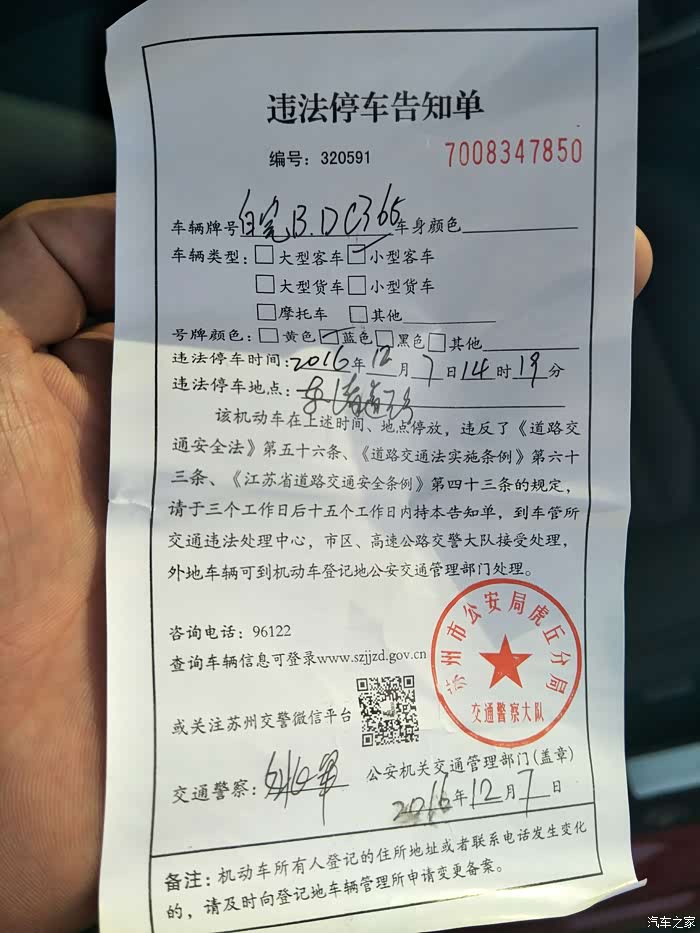 违法停车告知单
编号：320591 7008347850
车辆牌号 B.DC365 车身颜色
车辆类型：□大型客车 ☑小型客车
□大型货车 □小型货车
□摩托车 □其他
号牌颜色：□黄色 ☑蓝色 □黑色 □其他
违法停车时间：2016年12月7日14时19分
违法停车地点：
该机动车在上述时间、地点停放，违反了《道路交
通安全法》第五十六条、《道路交通法实施条例》第六十
三条、《江苏省道路交通安全条例》第四十三条的规定，
请于三个工作日后十五个工作日内持本告知单，到车管所
交通违法处理中心，市区、高速公路交警大队接受处理，
外地车辆可到机动车登记地公安交通管理部门处理。
咨询电话：96122
查询车辆信息可登录www.szjjzd.gov.cn
或关注苏州交警微信平台
苏州市公安局虎丘分局
交通警察大队
交通警察：
公安机关交通管理部门(盖章)
2016年12月7日
备注：机动车所有人登记的住所地址或者联系电话发生变化
的，请及时向登记地车辆管理所申请变更备案。
汽车之家